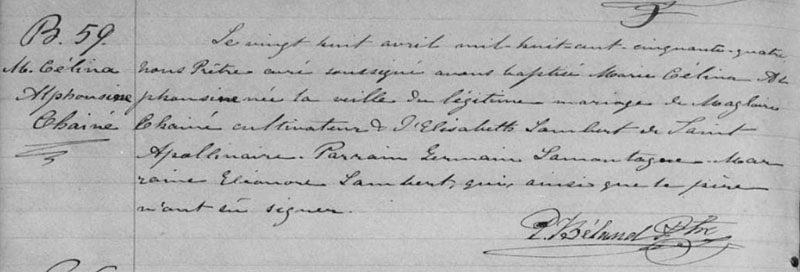 B. 59.
M. Célina
Alphonsine
Chainé
Le vingt huit avril mil-huit-cent-cinquante-quatre
nous Prêtre curé soussigné avons baptisé Marie Célina Al
phonsine née la veille du légitime mariage de Magloire
Chainé cultivateur & d'Elisabeth Lambert de Saint
Apollinaire. Parrain Germain Lamontagne. Mar
raine Eléonore Lambert, qui, ainsi que le père
n'ont sû signer.
P. Béland Ptre